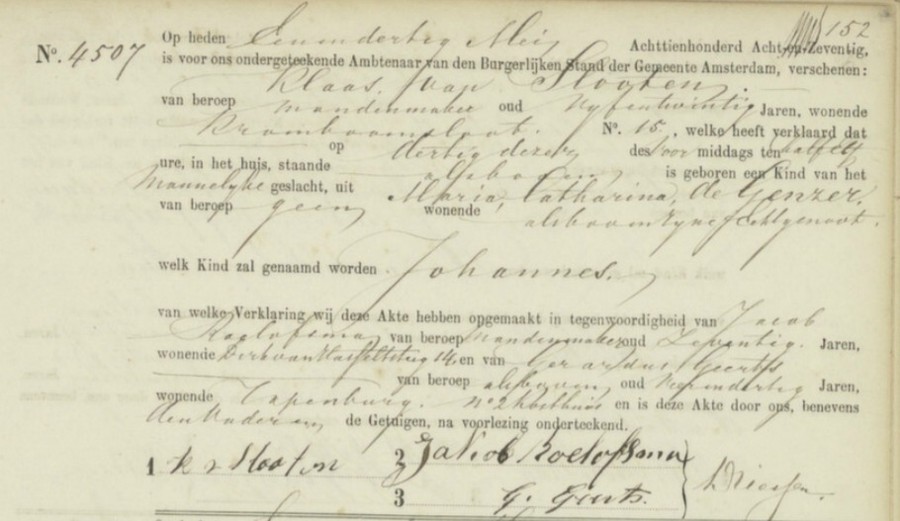 152
No. 4507
Op heden Een en dertig Mei Achttienhonderd Acht-en-Zeventig,
is voor ons ondergeteekende Ambtenaar van den Burgerlijken Stand der Gemeente Amsterdam, verschenen:
Klaas van Slooten.
van beroep mandenmaker oud Vyfentwintig Jaren, wonende
Kromboomsloot. No. 15., welke heeft verklaard dat
op dertig dezer des Voor middags ten half elf
ure, in het huis, staande alsboven is geboren een Kind van het
Mannelyke geslacht, uit Maria Catharina, de Genzer,
van beroep geen wonende alsboven zyne Echtgenoot.
welk Kind zal genaamd worden Johannes.
van welke Verklaring wij deze Akte hebben opgemaakt in tegenwoordigheid van Jacob
Roelofsma, van beroep Mandenmaker, oud Zeventig. Jaren,
wonende Dirk van Hasseltsteeg 14, en van Gerardus Geerts
van beroep alsboven, oud dertig Jaren,
wonende Tapenburg. No 2 Kosthuis en is deze Akte door ons, benevens
den Vader en de Getuigen, na voorlezing onderteekend.
1 K v Slooten 2 Jakob Roelofsma
3 G. Geerts.